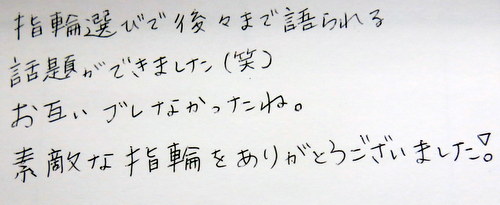 指輪選びで後々まで語られる
話題ができました(笑)
お互いブレなかったね。
素敵な指輪をありがとうございました♡